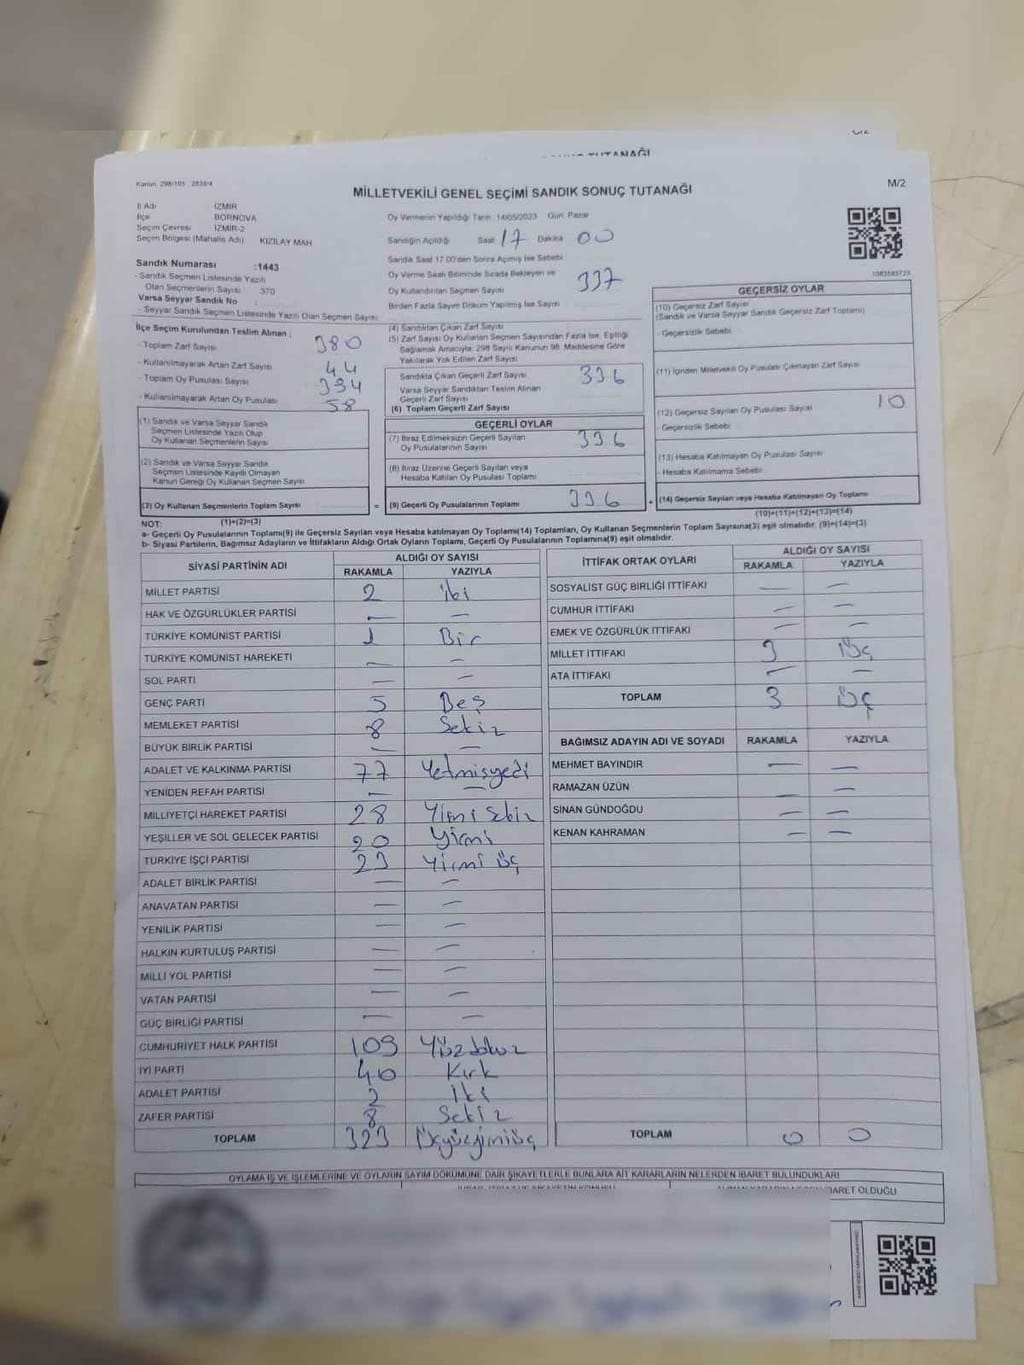 TUTANAĞI
Kanun: 298/105 ; 2839/4
MİLLETVEKİLİ GENEL SEÇİMİ SANDIK SONUÇ TUTANAĞI
M/2
İl Adı İZMİR
İlçe BORNOVA
Seçim Çevresi İZMİR-2
Seçim Bölgesi (Mahalle Adı) KIZILAY MAH
Sandık Numarası :1443
- Sandık Seçmen Listesinde Yazılı
Olan Seçmenlerin Sayısı 370
Varsa Seyyar Sandık No
- Seyyar Sandık Seçmen Listesinde Yazılı Olan Seçmen Sayısı
Oy Vermenin Yapıldığı Tarih 14/05/2023 Gün Pazar
Sandığın Açıldığı Saat 17 Dakika 00
Sandık Saat 17.00'den Sonra Açılmış İse Sebebi
Oy Verme Saati Bitiminde Sırada Bekleyen ve
Oy Kullandırılan Seçmen Sayısı 337
Birden Fazla Sayım Döküm Yapılmış İse Sayısı
1083585723
İlçe Seçim Kurulundan Teslim Alınan ;
- Toplam Zarf Sayısı 380
- Kullanılmayarak Artan Zarf Sayısı 44
- Toplam Oy Pusulası Sayısı 394
- Kullanılmayarak Artan Oy Pusulası 58
(1) Sandık ve Varsa Seyyar Sandık
Seçmen Listesinde Yazılı Olup
Oy Kullanan Seçmenlerin Sayısı
(2) Sandık ve Varsa Seyyar Sandık
Seçmen Listesinde Kayıtlı Olmayan
Kanun Gereği Oy Kullanan Seçmen Sayısı
(3) Oy Kullanan Seçmenlerin Toplam Sayısı =
(1)+(2)=(3)
(4) Sandıktan Çıkan Zarf Sayısı
(5) Zarf Sayısı Oy Kullanan Seçmen Sayısından Fazla İse, Eşitliği
Sağlamak Amacıyla; 298 Sayılı Kanunun 98. Maddesine Göre
Yakılarak Yok Edilen Zarf Sayısı
Sandıkta Çıkan Geçerli Zarf Sayısı 336
Varsa Seyyar Sandıktan Teslim Alınan
Geçerli Zarf Sayısı
(6) Toplam Geçerli Zarf Sayısı
GEÇERLİ OYLAR
(7) İtiraz Edilmeksizin Geçerli Sayılan
Oy Pusulalarının Sayısı 336
(8) İtiraz Üzerine Geçerli Sayılan veya
Hesaba Katılan Oy Pusulaları Toplamı
(9) Geçerli Oy Pusulalarının Toplamı 336 +
GEÇERSİZ OYLAR
(10) Geçersiz Zarf Sayısı
(Sandık ve Varsa Seyyar Sandık Geçersiz Zarf Toplamı)
- Geçersizlik Sebebi
(11) İçinden Milletvekili Oy Pusulası Çıkmayan Zarf Sayısı
(12) Geçersiz Sayılan Oy Pusulası Sayısı 10
- Geçersizlik Sebebi
(13) Hesaba Katılmayan Oy Pusulası Sayısı
- Hesaba Katılmama Sebebi
(14) Geçersiz Sayılan veya Hesaba Katılmayan Oy Toplamı
(10)+(11)+(12)+(13)=(14)
NOT:
a- Geçerli Oy Pusulalarının Toplamı(9) ile Geçersiz Sayılan veya Hesaba katılmayan Oy Toplamı(14) Toplamları, Oy Kullanan Seçmenlerin Toplam Sayısına(3) eşit olmalıdır. (9)+(14)=(3)
b- Siyasi Partilerin, Bağımsız Adayların ve İttifakların Aldığı Ortak Oyların Toplamı, Geçerli Oy Pusulalarının Toplamına(9) eşit olmalıdır.
SİYASİ PARTİNİN ADI ALDIĞI OY SAYISI
RAKAMLA YAZIYLA
MİLLET PARTİSİ 2 iki
HAK VE ÖZGÜRLÜKLER PARTİSİ — —
TÜRKİYE KOMÜNİST PARTİSİ 1 Bir
TÜRKİYE KOMÜNİST HAREKETİ — —
SOL PARTİ — —
GENÇ PARTİ 5 Beş
MEMLEKET PARTİSİ 8 Sekiz
BÜYÜK BİRLİK PARTİSİ — —
ADALET VE KALKINMA PARTİSİ 77 Yetmişyedi
YENİDEN REFAH PARTİSİ — —
MİLLİYETÇİ HAREKET PARTİSİ 28 Yirmi Sekiz
YEŞİLLER VE SOL GELECEK PARTİSİ 20 Yirmi
TÜRKİYE İŞÇİ PARTİSİ 23 Yirmi üç
ADALET BİRLİK PARTİSİ — —
ANAVATAN PARTİSİ — —
YENİLİK PARTİSİ — —
HALKIN KURTULUŞ PARTİSİ — —
MİLLİ YOL PARTİSİ — —
VATAN PARTİSİ — —
GÜÇ BİRLİĞİ PARTİSİ — —
CUMHURİYET HALK PARTİSİ 109 Yüzdokuz
İYİ PARTİ 40 Kırk
ADALET PARTİSİ 2 İki
ZAFER PARTİSİ 8 Sekiz
TOPLAM 323 Üçyüzyirmiüç
İTTİFAK ORTAK OYLARI ALDIĞI OY SAYISI
RAKAMLA YAZIYLA
SOSYALİST GÜÇ BİRLİĞİ İTTİFAKI — —
CUMHUR İTTİFAKI — —
EMEK VE ÖZGÜRLÜK İTTİFAKI — —
MİLLET İTTİFAKI 3 Üç
ATA İTTİFAKI — —
TOPLAM 3 Üç
BAĞIMSIZ ADAYIN ADI VE SOYADI RAKAMLA YAZIYLA
MEHMET BAYINDIR — —
RAMAZAN ÜZÜN — —
SİNAN GÜNDOĞDU — —
KENAN KAHRAMAN — —
TOPLAM 0 0
OYLAMA İŞ VE İŞLEMLERİNE VE OYLARIN SAYIM DÖKÜMÜNE DAİR ŞİKAYETLERLE BUNLARA AİT KARARLARIN NELERDEN İBARET BULUNDUKLARI
İBARET OLDUĞU